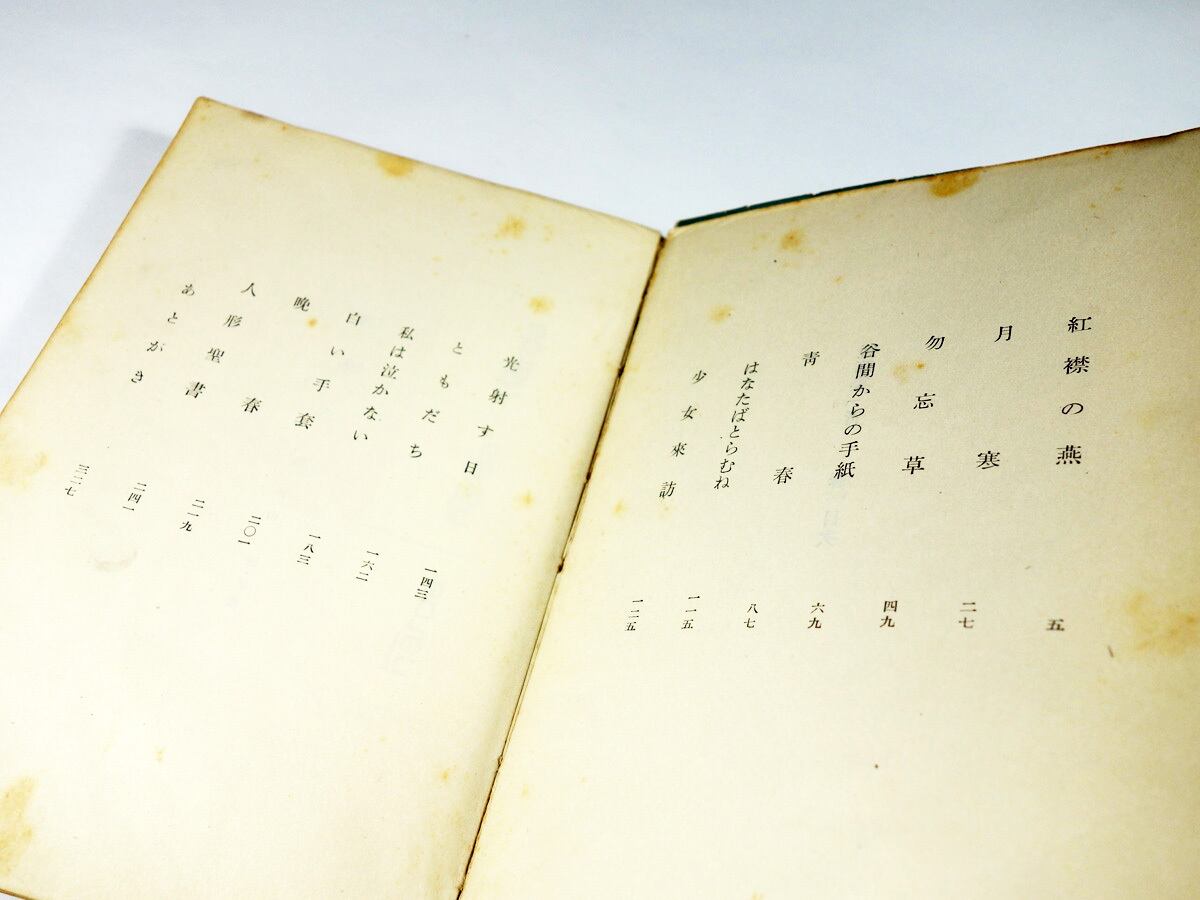 紅襟の燕 五
月寒 二七
勿忘草 四九
谷間からの手紙 六九
青春 八七
はなたばとらむね 一一五
少女來訪 一二五
光射す日 一四三
ともだち 一六二
私は泣かない 一八三
白い手套 二〇一
晩春 二一九
人形聖書 二四一
あとがき 三二七